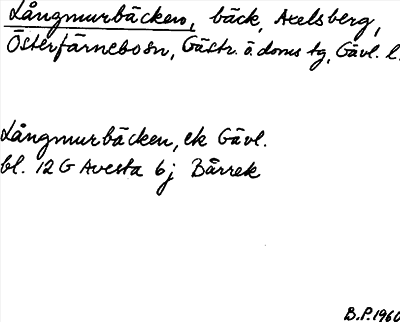 Långmurbäcken, bäck, Axelsberg,
Österfärnebosn, Gästr. ö. doms tg, Gävl. l.
Långmurbäcken, ek Gävl.
bl. 12 G Avesta 6j Bårrek
B.P. 1960